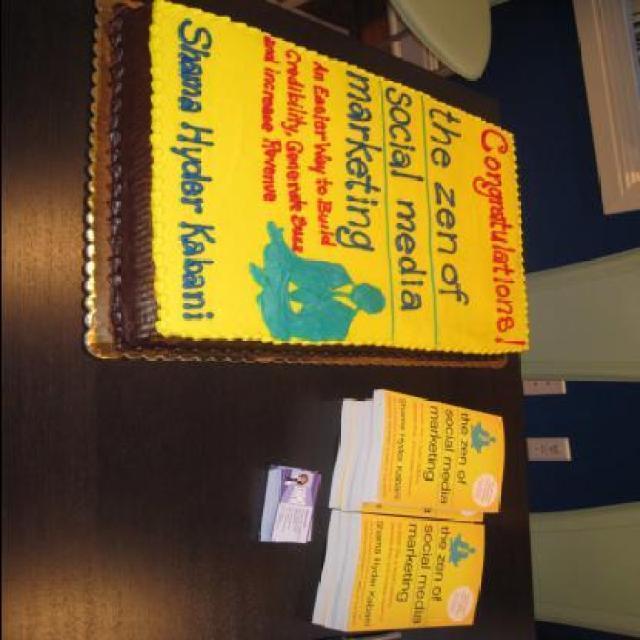 Congratulations!
the zen of
social media
marketing
An Easier Way to Build
Credibility, Generate Buzz
and increase Revenue
Shama Hyder Kabani
the zen of
social media
marketing
Shama Hyder Kabani
the zen of
social media
marketing
Shama Hyder Kabani